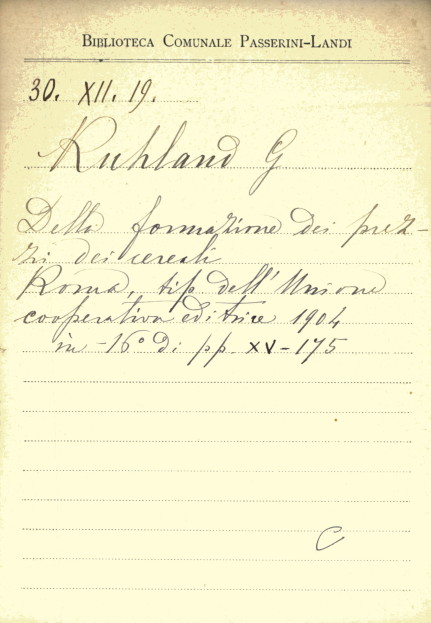 BIBLIOTECA COMUNALE PASSERINI-LANDI
30. XII. 19.
Ruhland G
Della formazione dei prez-
zi dei cereali
Roma, tip dell'Unione
cooperativa editrice 1904
in-16° di pp. XV-175
C